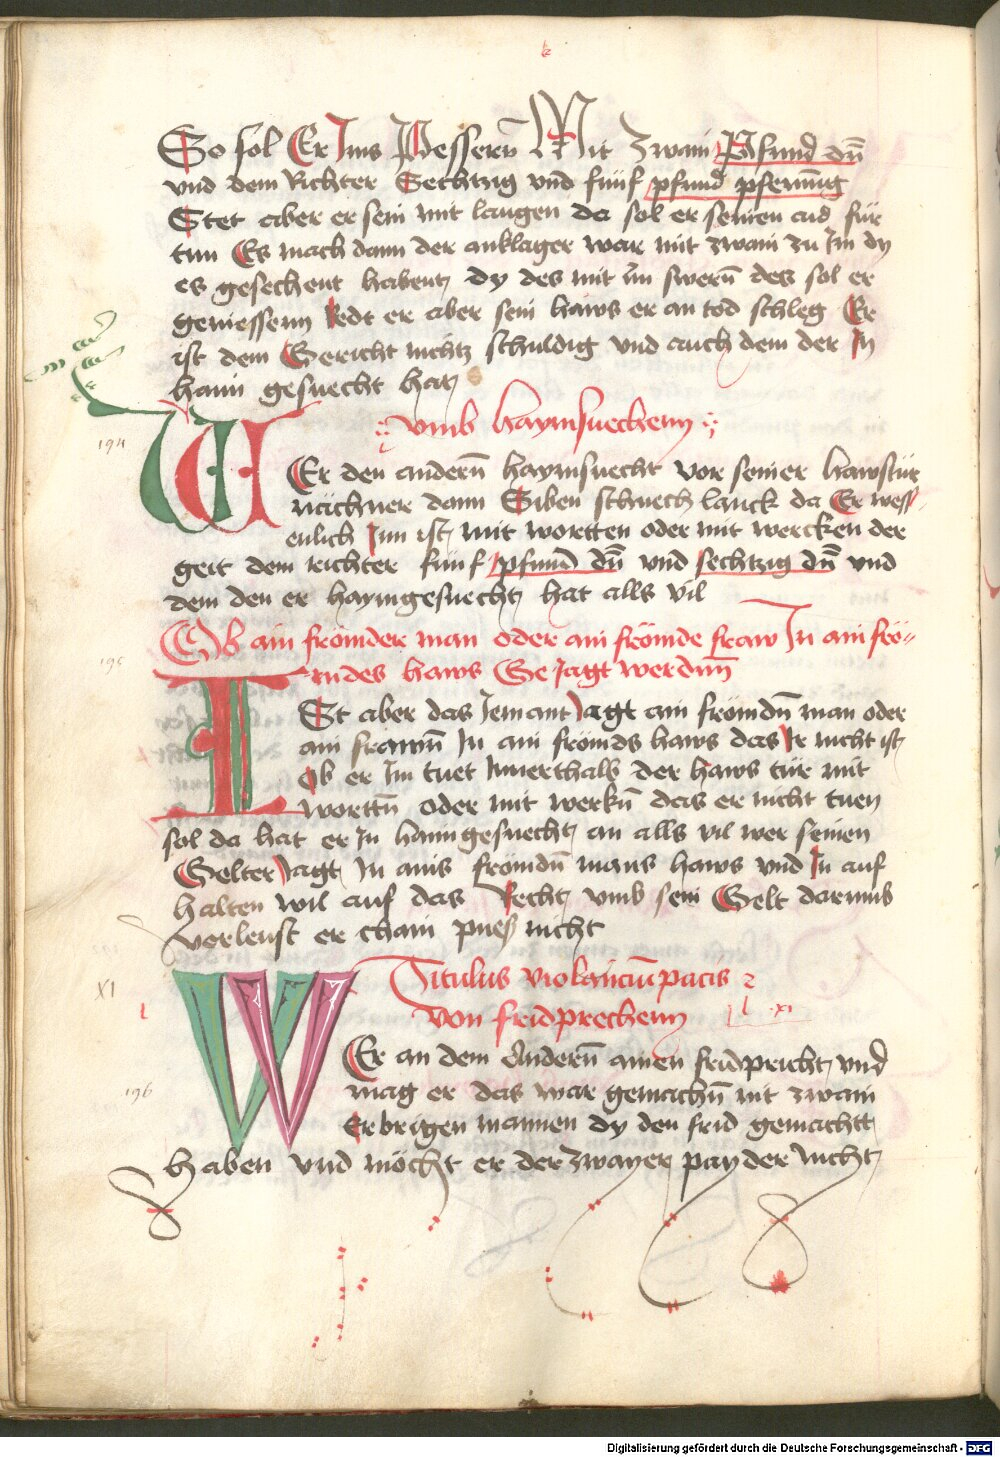 So sol Er Ims Pesserñ Mit zwain Pfund dñ
vnd dem Richter Sechtzig vnd fünf pfund pfenning
Stet aber er sein mit laugen da sol er seinen aid für
tun Es mach dann der anklager war mit zwain zu Im dy
es gesechent habent dy des mit im swerñ des sol er
geniessenn Redt er aber sein haws er an tod schleg Er
ist dem Gericht nichtz schuldig vnd auch dem der In
haim gesuecht hat
vmb haymsuechenn
194
WEr den anderñ haymsuecht vor seiner hawstür
nächner dann Siben schuech lanck da Er wess-
enlich Inn ist mit wortten oder mit wercken der
geit dem richter fünf pfund dñ vnd sechtzig dñ vnd
dem den er haymgesuecht hat alls vil
Ob ain frömder man oder ain frömde fraw In ain frö-
195
mdes haws Geiagt werdnn
ISt aber das Iemant Iagt ain frömdñ man oder
ain frawñ In ain frömds haws das Ir nicht ist
Ob er Im tuet Innerthalb der haws tür mit
worttñ oder mit werkñ das er nicht tuen
sol da hat er In haimgesuecht an alls vil wer seinen
Gelter Iagt In ains frömdñ mans haws vnd In auf
halten wil auf das Recht vmb sein Gelt darumb
verleust er chain pues nicht
XI
Titulus violanciũ pacis
Von fridprechenn
xi
196
WEr an dem Anderñ ainen fridpricht vnd
mag er das war gemachñ mit zwain
Erbrigen mannen dy den frid gemachtt
haben vnd möcht er der zwayer payder nicht
Digitalisierung gefördert durch die Deutsche Forschungsgemeinschaft - DFG